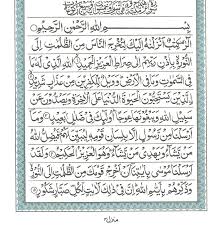 بِسْمِ اللهِ الرَّحْمٰنِ الرَّحِيْمِ
الٓرٰ كِتٰبٌ اَنْزَلْنٰهُ اِلَيْكَ لِتُخْرِجَ النَّاسَ مِنَ الظُّلُمٰتِ اِلَى
النُّوْرِ بِاِذْنِ رَبِّهِمْ اِلٰى صِرَاطِ الْعَزِيْزِ الْحَمِيْدِ اللهِ الَّذِيْ لَهٗ مَا
فِي السَّمٰوٰتِ وَمَا فِي الْاَرْضِ وَوَيْلٌ لِّلْكٰفِرِيْنَ مِنْ عَذَابٍ شَدِيْدِ
الَّذِيْنَ يَسْتَحِبُّوْنَ الْحَيٰوةَ الدُّنْيَا عَلَى الْاٰخِرَةِ وَيَصُدُّوْنَ عَنْ
سَبِيْلِ اللهِ وَيَبْغُوْنَهَا عِوَجًا اُولٰٓئِكَ فِيْ ضَلٰلٍ بَعِيْدٍ وَمَآ
اَرْسَلْنَا مِنْ رَّسُوْلٍ اِلَّا بِلِسَانِ قَوْمِهٖ لِيُبَيِّنَ لَهُمْ فَيُضِلُّ اللهُ
مَنْ يَّشَآءُ وَيَهْدِيْ مَنْ يَّشَآءُ وَهُوَ الْعَزِيْزُ الْحَكِيْمُ وَلَقَدْ
اَرْسَلْنَا مُوْسٰى بِاٰيٰتِنَآ اَنْ اَخْرِجْ قَوْمَكَ مِنَ الظُّلُمٰتِ اِلَى النُّوْرِ
وَذَكِّرْهُمْ بِاَيّٰىمِ اللهِ اِنَّ فِيْ ذٰلِكَ لَاٰيٰتٍ لِّكُلِّ صَبَّارٍ شَكُوْرٍ
منزل ٣